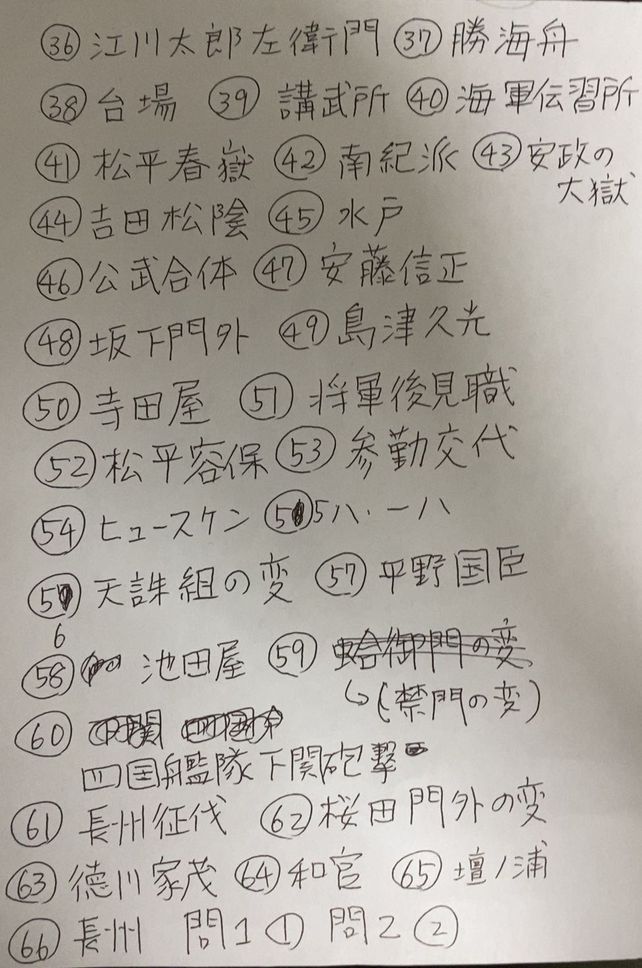 ㊱ 江川太郎左衛門 ㊲ 勝海舟
㊳ 台場 ㊴ 講武所 ㊵ 海軍伝習所
㊶ 松平春嶽 ㊷ 南紀派 ㊸ 安政の
大獄
㊹ 吉田松陰 ㊺ 水戸
㊻ 公武合体 ㊼ 安藤信正
㊽ 坂下門外 ㊾ 島津久光
㊿ 寺田屋 (51) 将軍後見職
(52) 松平容保 (53) 参勤交代
(54) ヒュースケン (55) 八・一八
(56) 天誅組の変 (57) 平野国臣
(58) 池田屋 (59) 蛤御門の変
↳(禁門の変)
(60)
四国艦隊下関砲撃
(61) 長州征伐 (62) 桜田門外の変
(63) 徳川家茂 (64) 和宮 (65) 壇ノ浦
(66) 長州 問1 ① 問2 ②